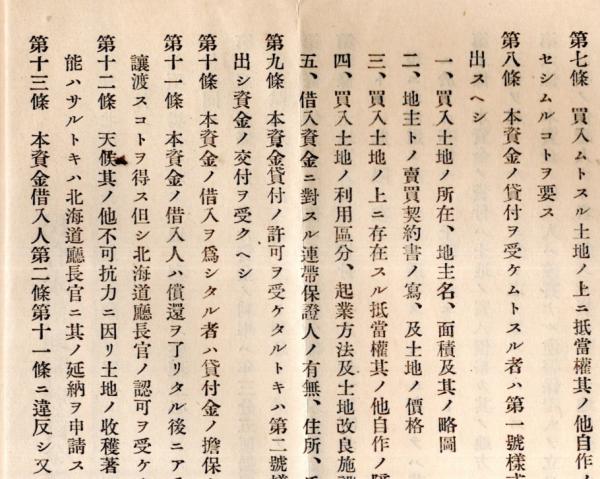 第七條　買入ムトスル土地ノ上ニ抵當權其ノ他自作ノ
セシムルコトヲ要ス
第八條　本資金ノ貸付ヲ受ケムトスル者ハ第一號樣式
出スヘシ
一、買入土地ノ所在、地主名、面積及其ノ略圖
二、地主トノ賣買契約書ノ寫、及土地ノ價格
三、買入土地ノ上ニ存在スル抵當權其ノ他自作ノ障
四、買入土地ノ利用區分、起業方法及土地改良施設
五、借入資金ニ對スル連帶保證人ノ有無、住所、
第九條　本資金貸付ノ許可ヲ受ケタルトキハ第二號樣
出シ資金ノ交付ヲ受クヘシ
第十條　本資金ノ借入ヲ爲シタル者ハ貸付金ノ擔保
第十一條　本資金ノ借入人ハ償還ヲ了リタル後ニア
讓渡スコトヲ得ス但シ北海道廳長官ノ認可ヲ受ケ
第十二條　天候其ノ他不可抗力ニ因リ土地ノ收穫著
能ハサルトキハ北海道廳長官ニ其ノ延納ヲ申請ス
第十三條　本資金借入人第二條第十一條ニ違反シ又